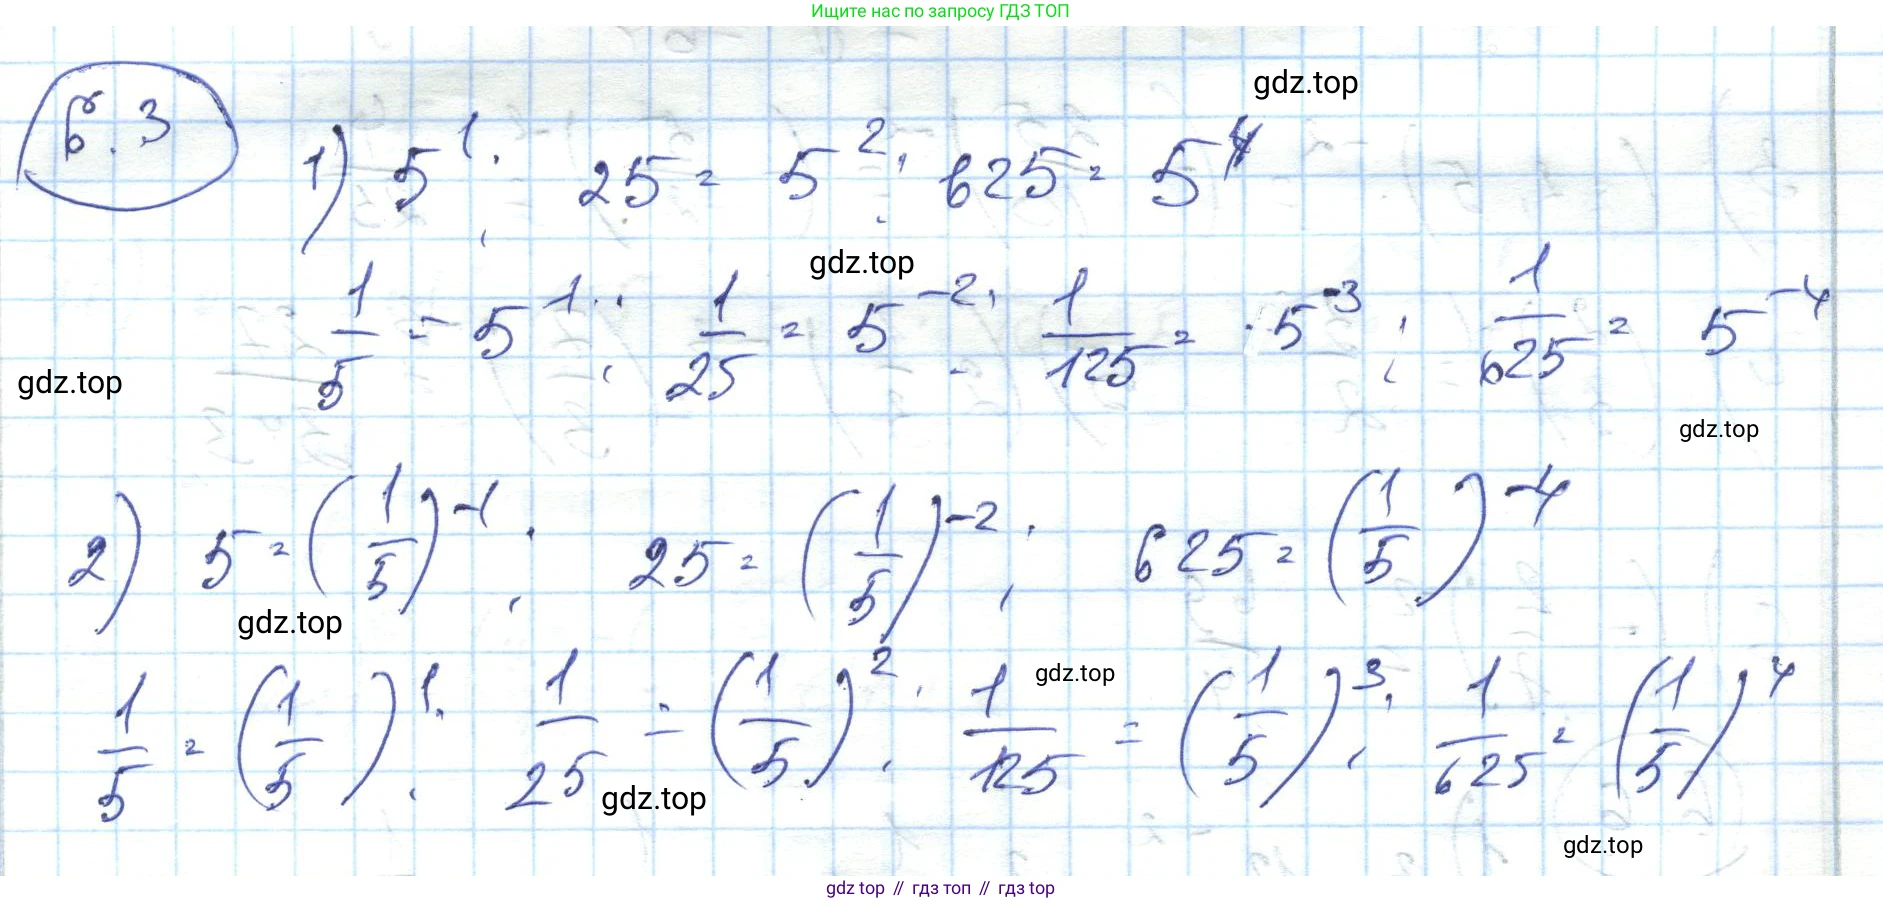 Ищите нас по запросу ГДЗ ТОП
gdz.top
6.3
1) 5¹; 25 = 5²; 625 = 5⁴
gdz.top
1/5 = 5⁻¹; 1/25 = 5⁻²; 1/125 = 5⁻³; 1/625 = 5⁻⁴
gdz.top
gdz.top
2) 5 = (1/5)⁻¹; 25 = (1/5)⁻²; 625 = (1/5)⁻⁴
gdz.top
gdz.top
1/5 = (1/5)¹; 1/25 = (1/5)²; 1/125 = (1/5)³; 1/625 = (1/5)⁴
gdz.top
gdz.top
gdz top // гдз топ // gdz top